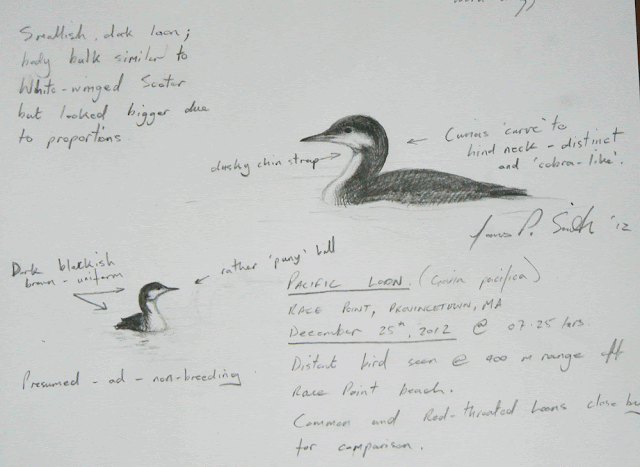 Smallish, dark loon;
body bulk similar to
White-winged Scoter
but looked bigger due
to proportions.
dusky chin strap
Curious 'curve' to
hind neck - distinct
and 'cobra-like'.
James P. Smith '12
Dark blackish
brown - uniform
rather 'puny' bill
Presumed - ad - non-breeding
PACIFIC LOON. (Gavia pacifica)
RACE POINT, PROVINCETOWN, MA
December 25th, 2012 @ 07.25 hrs.
Distant bird seen @ 900 m range off
Race Point beach.
Common and Red-throated Loons close by
for comparison.